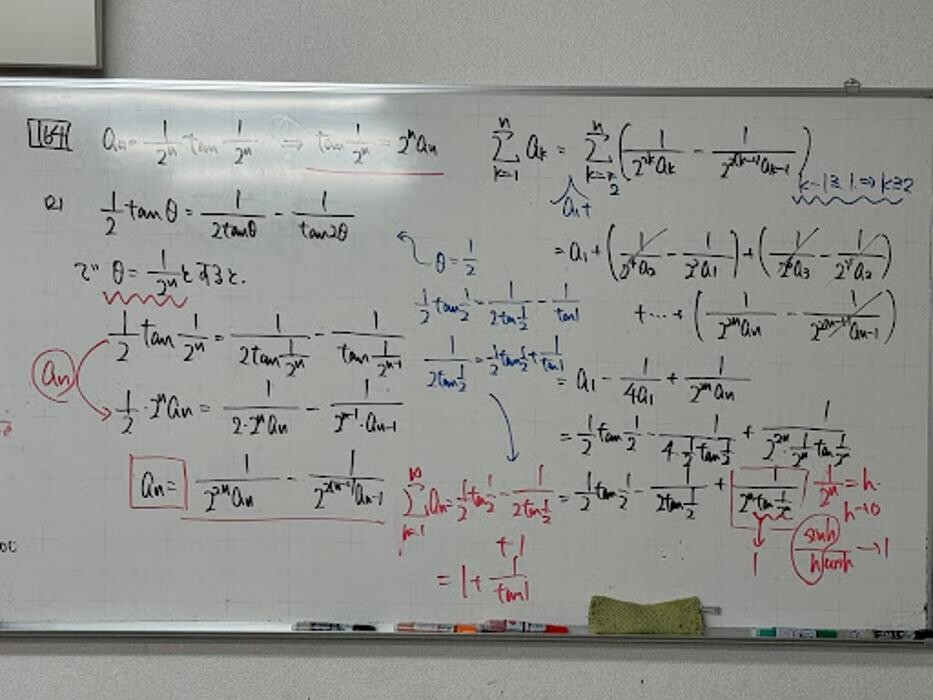 164 a_n = 1/2^n tan 1/2^n ⇒ tan 1/2^n = 2^n a_n
(1) 1/2 tanθ = 1/(2tanθ) - 1/(tan2θ)
で θ = 1/2^n とすると.
1/2 tan 1/2^n = 1/(2tan 1/2^n) - 1/(tan 1/2^{n-1})
a_n
1/2 · 2^n a_n = 1/(2·2^n a_n) - 1/(2^{n-1}·a_{n-1})
a_n = 1/(2^{2n} a_n) - 1/(2^{2(n-1)} a_{n-1})
θ = 1/2
1/2 tan 1/2 = 1/(2tan 1/2) - 1/tan1
1/(2tan 1/2) = 1/2 tan 1/2 + 1/tan1
Σ_{k=1}^{n} a_k = Σ_{k=2}^{n} (1/(2^{2k} a_k) - 1/(2^{2(k-1)} a_{k-1}))
a_1 +
k-1≧1 ⇒ k≧2
= a_1 + (1/(2^4 a_2) - 1/(2^2 a_1)) + (1/(2^6 a_3) - 1/(2^4 a_2))
+ … + (1/(2^{2n} a_n) - 1/(2^{2(n-1)} a_{n-1}))
= a_1 - 1/(4a_1) + 1/(2^{2n} a_n)
= 1/2 tan 1/2 - 1/(4·1/2 tan 1/2) + 1/(2^{2n}·1/2^n tan 1/2^n)
= 1/2 tan 1/2 - 1/(2tan 1/2) + 1/(2^n tan 1/2^n)
1/2^n = h
h→0
1
sinh/(h cosh) → 1
Σ_{n=1}^{∞} a_n = 1/2 tan 1/2 - 1/(2tan 1/2)
+1
= 1 + 1/tan1